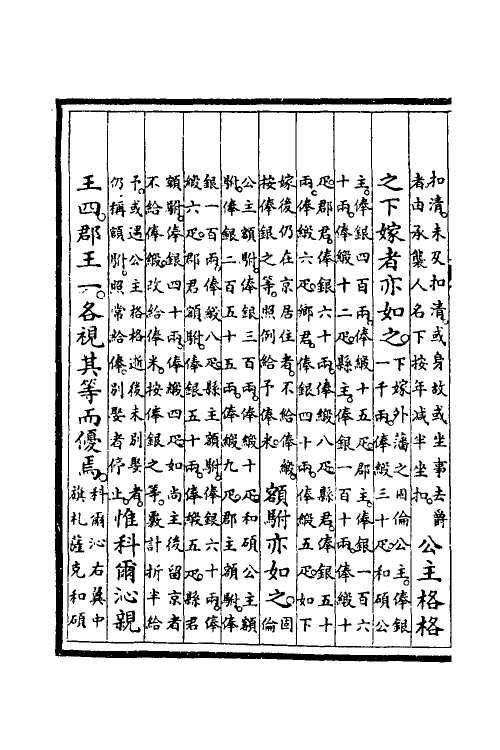 扣清未及扣清或身故或坐事去爵
者由承襲人名下按年減半坐扣
公主格格
之下嫁者亦如之
下嫁外藩之固倫公主俸銀
一千兩俸緞三十疋和碩公
主俸銀四百兩俸緞十五疋郡主俸銀一百六
十兩俸緞十二疋縣主俸銀一百十兩俸緞十
疋郡君俸銀六十兩俸緞八疋縣君俸銀五十
兩俸緞六疋鄉君俸銀四十兩俸緞五疋如下
嫁後仍在京居住者不給俸緞
按俸銀之等照例給予俸米
額駙亦如之
固
倫
公主額駙俸銀三百兩俸緞十疋和碩公主額
駙俸銀二百五十五兩俸緞九疋郡主額駙俸
銀一百兩俸緞八疋縣主額駙俸銀六十兩俸
緞六疋郡君額駙俸銀五十兩俸緞五疋縣君
額駙俸銀四十兩俸緞四疋如尚主後留京者
不給俸緞改給俸米按俸銀之等數計折半給
予或遇公主格格逝後未別娶者
仍稱額駙照常給俸別娶者停止
惟科爾沁親
王四郡王一各視其等而優焉
科爾沁右翼中
旗札薩克和碩